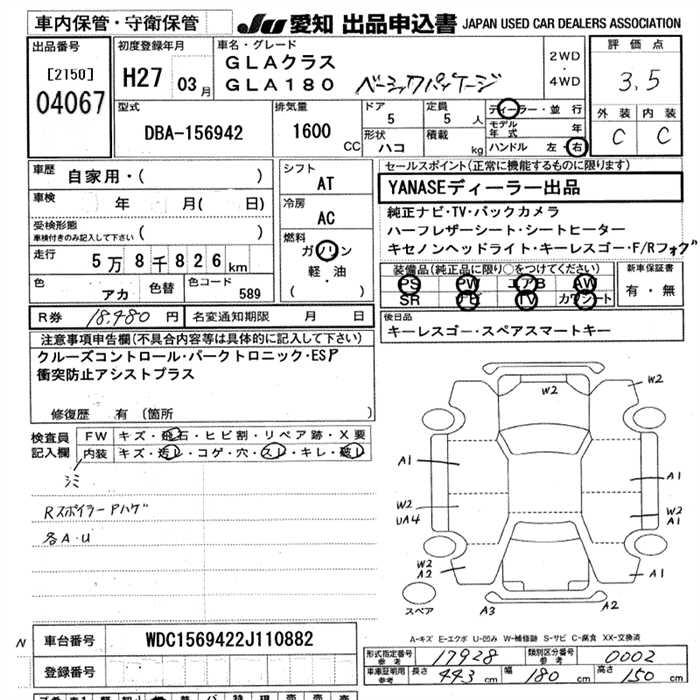 車内保管・守衛保管
JU 愛知 出品申込書 JAPAN USED CAR DEALERS ASSOCIATION
出品番号
[2150]
04067
初度登録年月
H27 03月
車名・グレード
GLAクラス
GLA180 ベーシックパッケージ
2WD
・
4WD
評価点
3.5
外装 内装
C C
型式
DBA-156942
排気量
1600 CC
ドア
5
定員
5人
形状
ハコ
積載
kg
ディーラー・並行
モデル年式 年
ハンドル 左・右
車歴
自家用・( )
車検
年 月( 日)
受検形態
車検付きのみ記入して下さい ( )
走行
5万8千826km
色
アカ
色替
色コード
589
シフト
AT
冷房
AC
燃料
ガソリン
軽・油
( )
R券 18,480円
名変通知期限 月 日
セールスポイント(正常に機能するものに限ります)
YANASEディーラー出品
純正ナビ・TV・バックカメラ
ハーフレザーシート・シートヒーター
キセノンヘッドライト・キーレスゴー・F/Rフォグ
装備品(純正品に限り○をつけてください)
PS PW エアB AW
SR ナビ TV カワシート
新車保証書
有・無
後日品
キーレスゴー・スペアスマートキー
注意事項申告欄(不具合内容等は具体的に記入して下さい)
クルーズコントロール・パークトロニック・ESP
衝突防止アシストプラス
修復歴 有 (箇所 )
検査員記入欄
FW キズ・飛石・ヒビ割・リペア跡・X要
内装 キズ・汚レ・コゲ・穴・スレ・キレ・破レ
シミ
Rスポイラー Aハゲ
各A・U
W2
W2
A1
A1
W2
UA4
W2
A1
W2
A2
A1
スペア
A3
A2
A-キズ E-エクボ U-凹み W-補修跡 S-サビ C-腐食 XX-交換済
N
車台番号
WDC1569422J110882
登録番号
形式指定番号
参考
17928
類別区分番号
参考
0002
車庫証明用
参考
長さ 443cm 幅 180cm 高さ 150cm